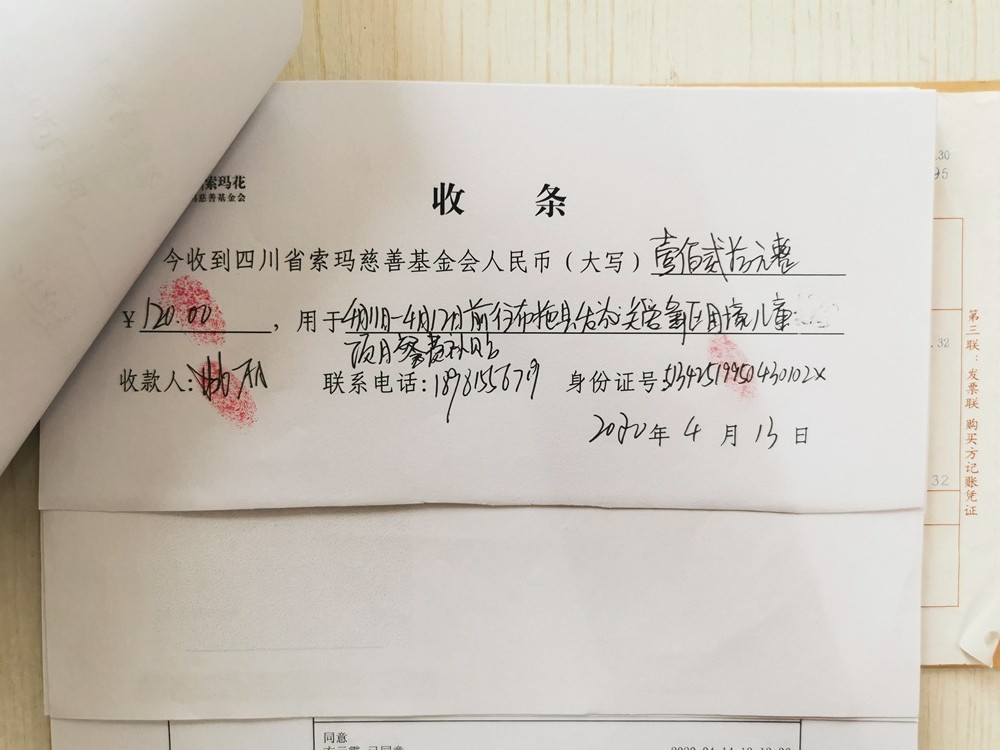 索玛花
慈善基金会
收 条
今收到四川省索玛慈善基金会人民币（大写）壹佰贰拾元整
¥120.00，用于4月11日-4月12日前往布拖县 彝区困境儿童
项目 补贴
收款人： 联系电话：18981556719 身份证号51342519950430102X
2020年4月13日
.30
95
.32
32
第三联：发票联 购买方记账凭证
同意